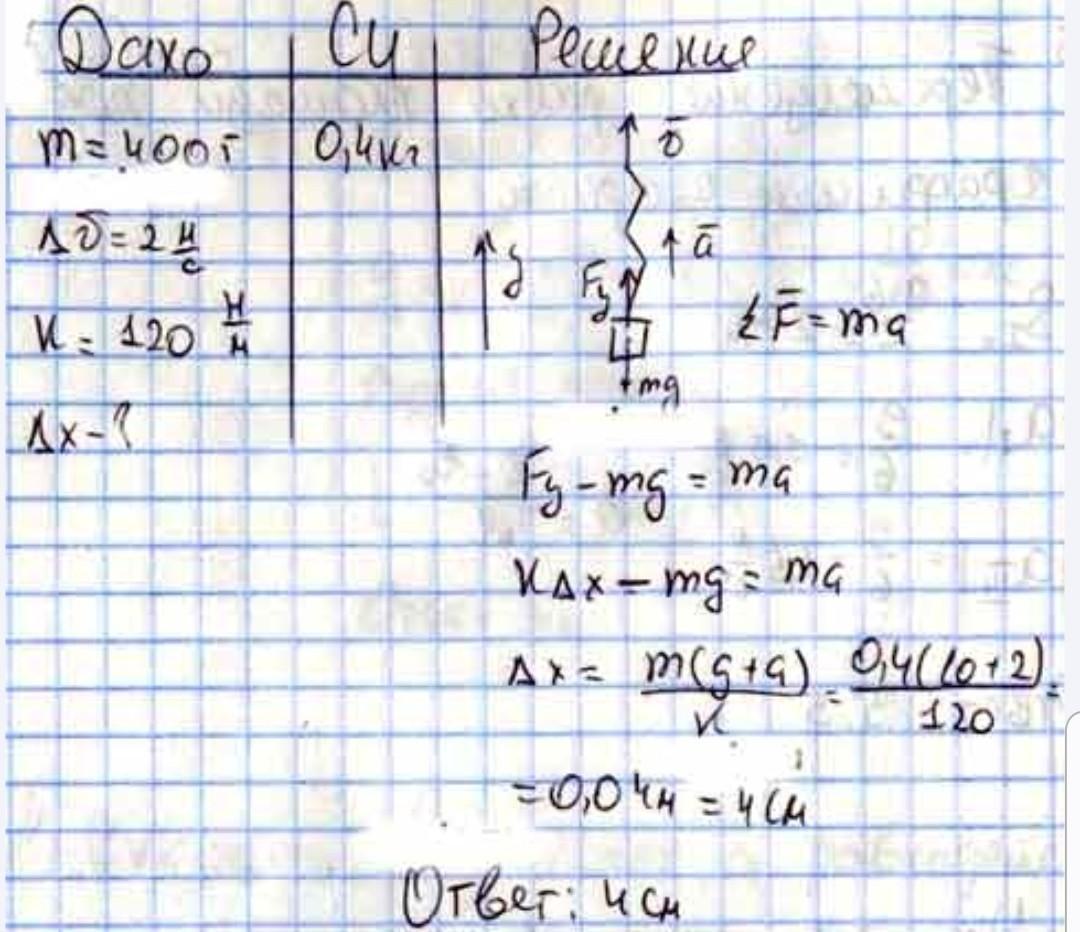 Дано СИ Решение
m = 400 г 0,4 кг
v̄
Δv̄ = 2 м/с
y ā
Fy
k = 120 Н/м
ΣF̄ = ma
mg
Δx - ?
Fy - mg = ma
kΔx - mg = ma
Δx = m(g+a)/k = 0,4(10+2)/120 =
= 0,04 м = 4 см
Ответ: 4 см